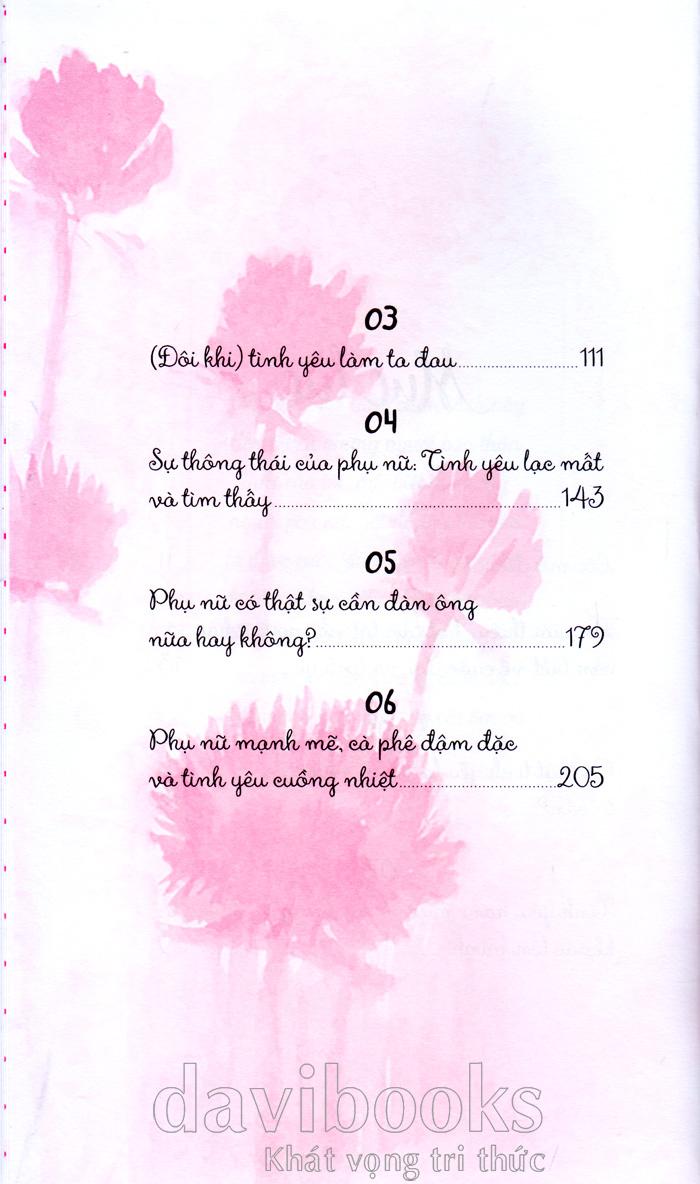 03
(Đôi khi) tình yêu làm ta đau....................111
04
Sự thông thái của phụ nữ: Tình yêu lạc mất
và tìm thấy....................143
05
Phụ nữ có thật sự cần đàn ông
nữa hay không?....................179
06
Phụ nữ mạnh mẽ, cà phê đậm đặc
và tình yêu cuồng nhiệt....................205
davibooks
Khát vọng tri thức